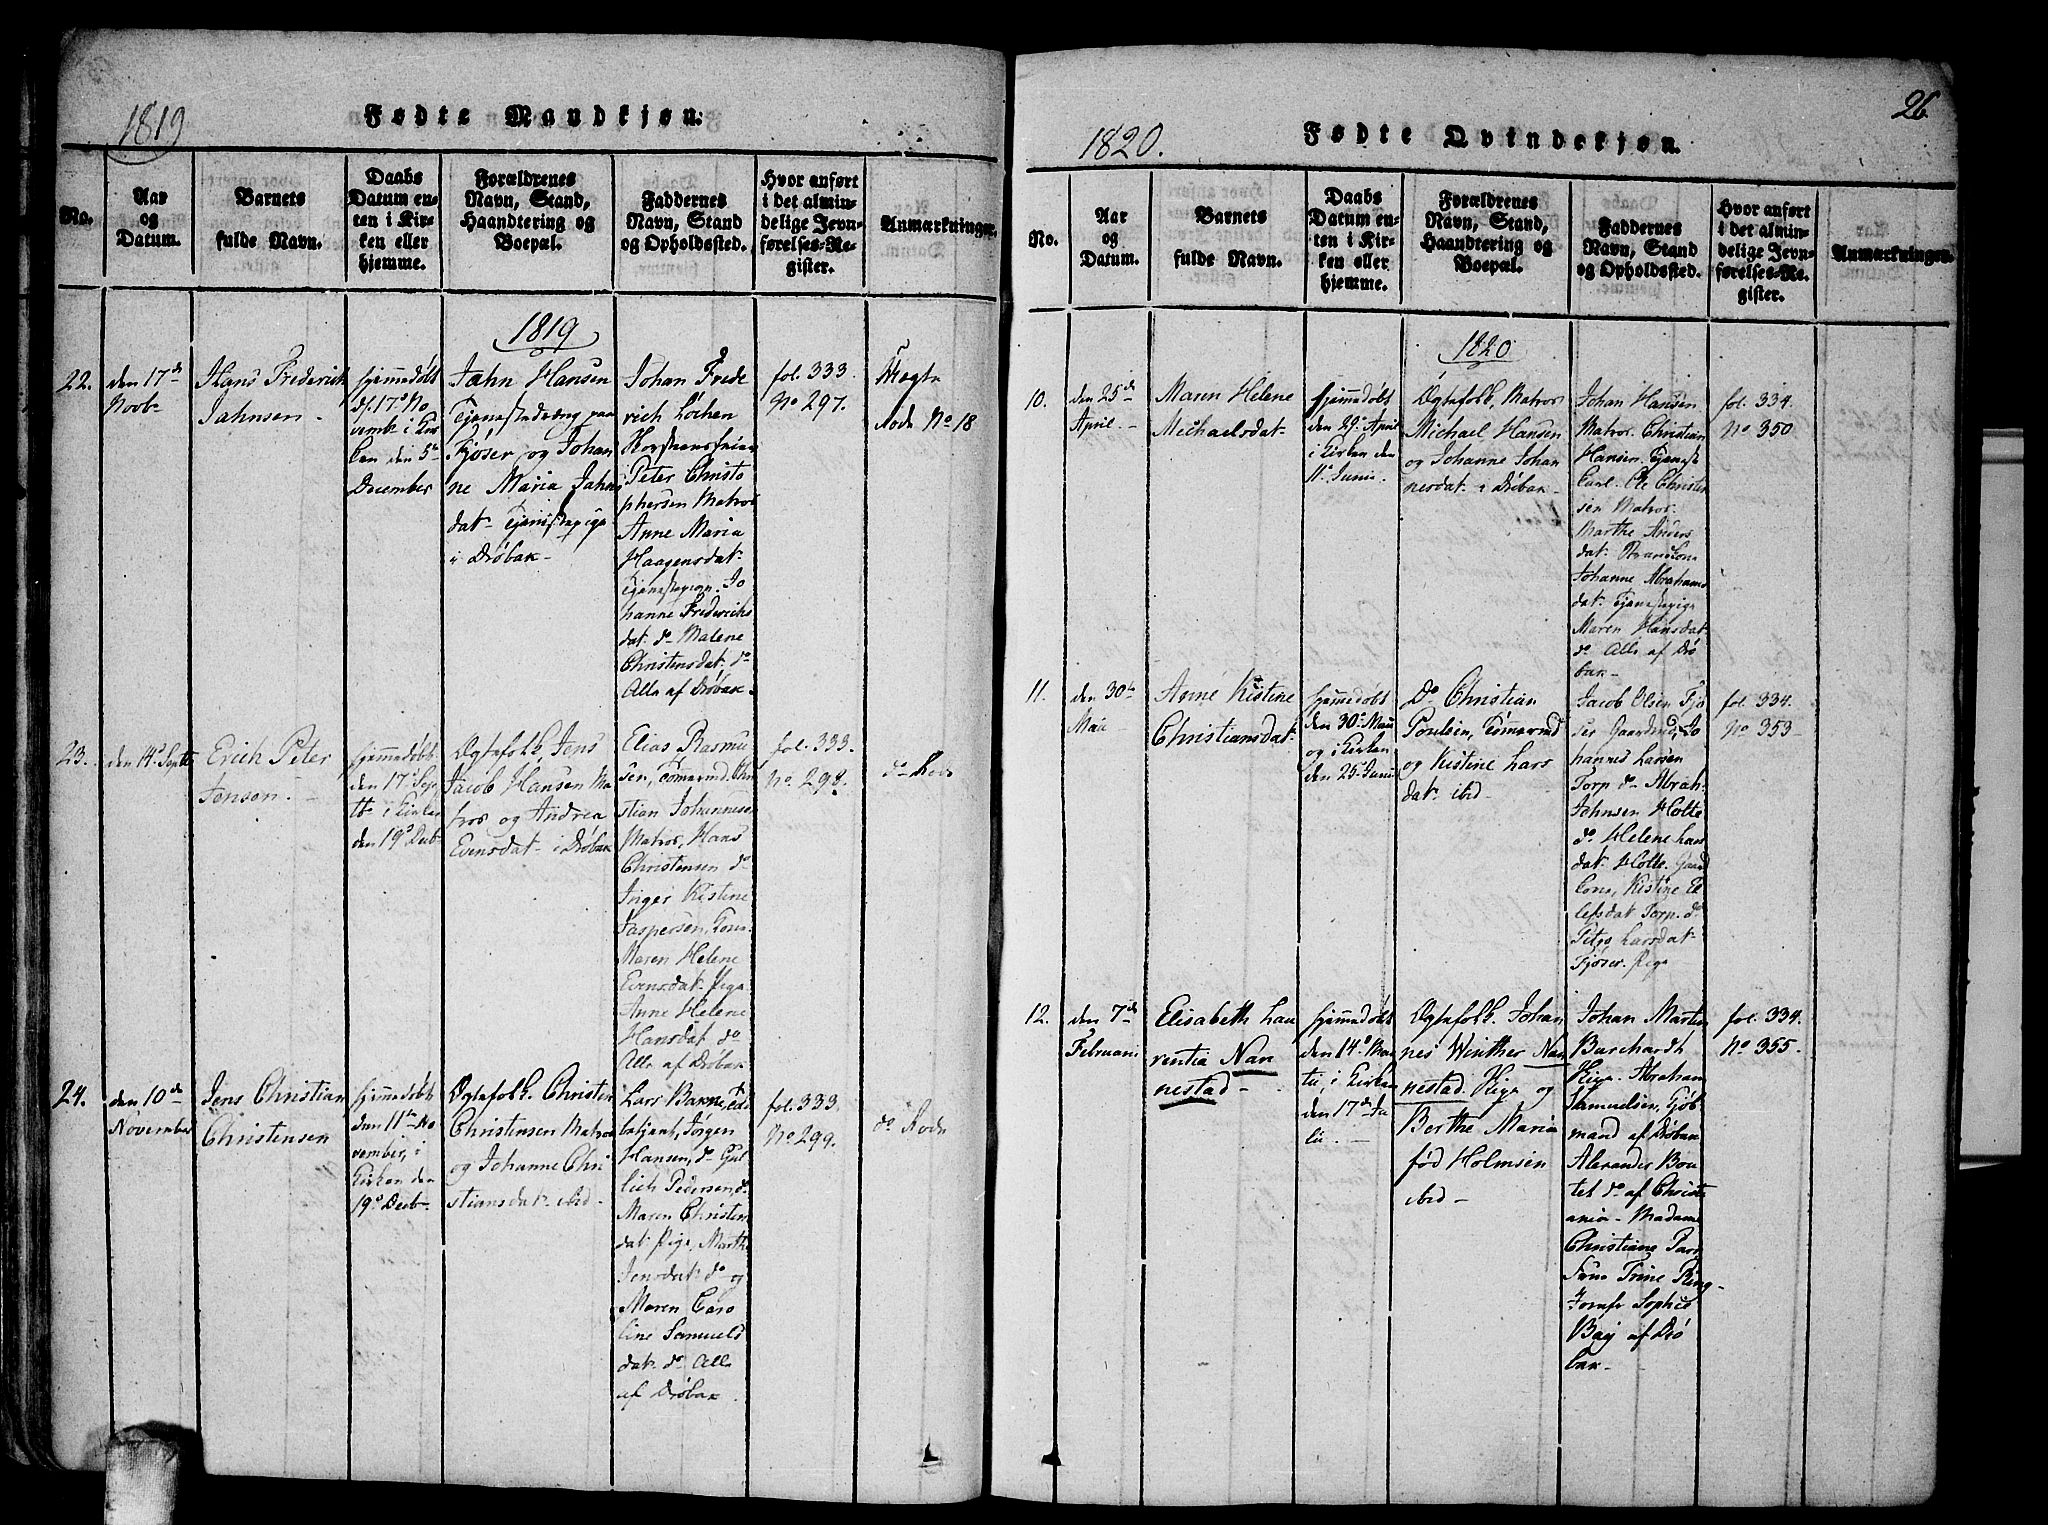 1819
Fødte Mandkjøn.
No.
Aar
og
Datum.
Barnets
fulde Navn.
Daabs
Datum en-
ten i Kir-
ken eller
hjemme.
Forældrenes
Navn, Stand,
Haandtering og
Boepæl.
Faddernes
Navn, Stand
og Opholdssted.
Hvor anført
i det almin-
delige Jevn-
førelses-Re-
gister.
Anmærkninger.
1819
22.
den 17de
Novb-
Hans Frederich
Jahnsen -
hjemmedøbt
d. 17de No
vemb. i Kir
ken den 5te
December
Jahn Hansen
Tjenestedreng paa
Fjøser, og Johan
ne Maria Jahns
dat- Tjenestepige
i Drøbak-
Johan Frede
rich Lochen
Peter Christo
phersen Matros
Anne Maria
Haagensdat-
Tjenestepige. Jo
hanne Frederichs
dat. do Malene
Christensdat. do
Alle af Drøbak-
fol. 333.
No 297.
Rode No 18
23.
den 14de Septb
Erich Peter
Jensen. -
hjemmedøbt
den 17de Sep
tb- i Kirken
den 19de Decb-
Ægtefolk, Jens
Jacob Hansen Ma
tros og Andrea
Evensdat- i Drøbak
Elias Rasmu
sen, Tømermd. Chri
stian Johannesen
Matros, Hans
Christensen do
Inger Kistine
Jaspersen, Kone
Maren Helene
Evensdat. Pige
Anne Helene
Hansdat do
Alle af Drøbak
fol. 333.
No 298.
do Rode
24.
den 10de
November
Jens Christian
Christensen
hjemmedøbt
den 11te No
vember, i
Kirken den
19de Decb-
Ægtefolk. Christen
Christensen Matros
og Johanne Chri
stiansdat- ibid-
Lars Bakke,
Jørgen
Hansen, do Gul
lich Pedersen, do
Maren Christen
dat. Pige, Marthe
Jensdat. do og
Maren Caro
line Samuels
dat- do Alle
af Drøbak.
fol. 333.
No 299.
do Rode
26
1820.
Fødte Qvindekjøn.
No.
Aar
og
Datum.
Barnets
fulde Navn.
Daabs
Datum en-
ten i Kir-
ken eller
hjemme.
Forældrenes
Navn, Stand,
Haandtering og
Boepæl.
Faddernes
Navn, Stand
og Opholdssted.
Hvor anført
i det almin-
delige Jevn-
førelses-Re-
gister.
Anmærkninger.
1820
10.
den 25de
April. -
Maren Helene
Michaelsdat-
hjemmedøbt
den 29de April
i Kirken den
11te Junii.
Ægtefolk, Matros
Michael Hansen
og Johanne Johan
nesdat- i Drøbak-
Johan Hansen
Matros. Christian
Hansen. Tjeneste
karl. Ole Christen
sen Matros.
Marthe Anders
dat.
Johanne Abrahams
dat. Tjenestepige
Maren Hansdat-
do Alle af Drø
bak-
fol. 334.
No 350
11.
den 30te
Maii
Anne Kistine
Christiansdat-
hjemmedøbt
den 30te Maii
og i Kirken
den 25de Junii
Do Christian
Poulsen, Tømermd
og Kistine Lars
dat. ibid-
Jacob Olsen Fjø
ser Gaardmd, Jo
hannes Larsen
Torp do Abrah.
Jahnsen Holte
do Helene Lars
dat- Holte. Gaard
kone, Kistine El
lefsdat Torp. do
Larsdat-
Fjøser. Pige
fol. 334.
No 353-
12.
den 7de
Februarii
Elisabeth Lau
rentia Nan
nestad -
hjemmedøbt
den 14de Mar
tii, i Kirken
den 17de Ju
lii. -
Ægtefolk. Johan
nes Winther Nan
nestad. og
Berthe Maria
fød Holmsen
ibid -
Johan Martin
Burchardt
Abraham
Samuelsen, Kjøb
mand af Drøbak
Alexander Bou
tet do af Christi
ania- Madame
Christiane Parr
Frue Trine Ring-
Jomfr Sophie
Bay af Drø
bak-
fol. 334.
No 355-